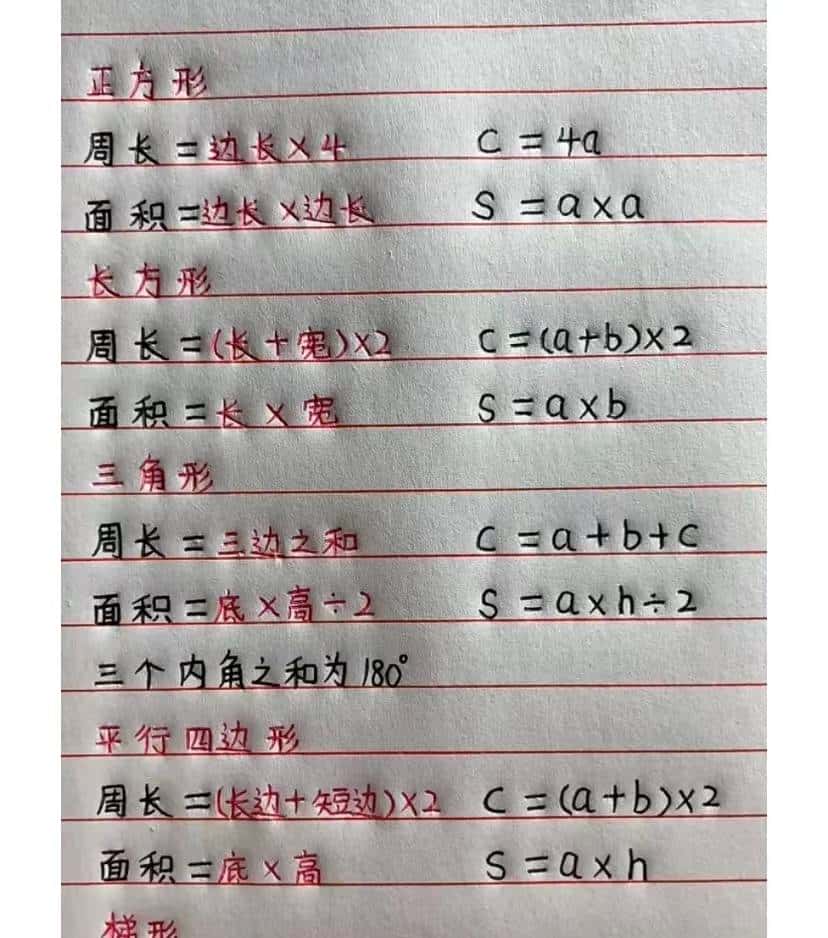 正方形
周长=边长×4 C=4a
面积=边长×边长 S=a×a
长方形
周长=(长+宽)×2 C=(a+b)×2
面积=长×宽 S=a×b
三角形
周长=三边之和 C=a+b+c
面积=底×高÷2 S=a×h÷2
三个内角之和为180°
平行四边形
周长=(长边+短边)×2 C=(a+b)×2
面积=底×高 S=a×h
梯形